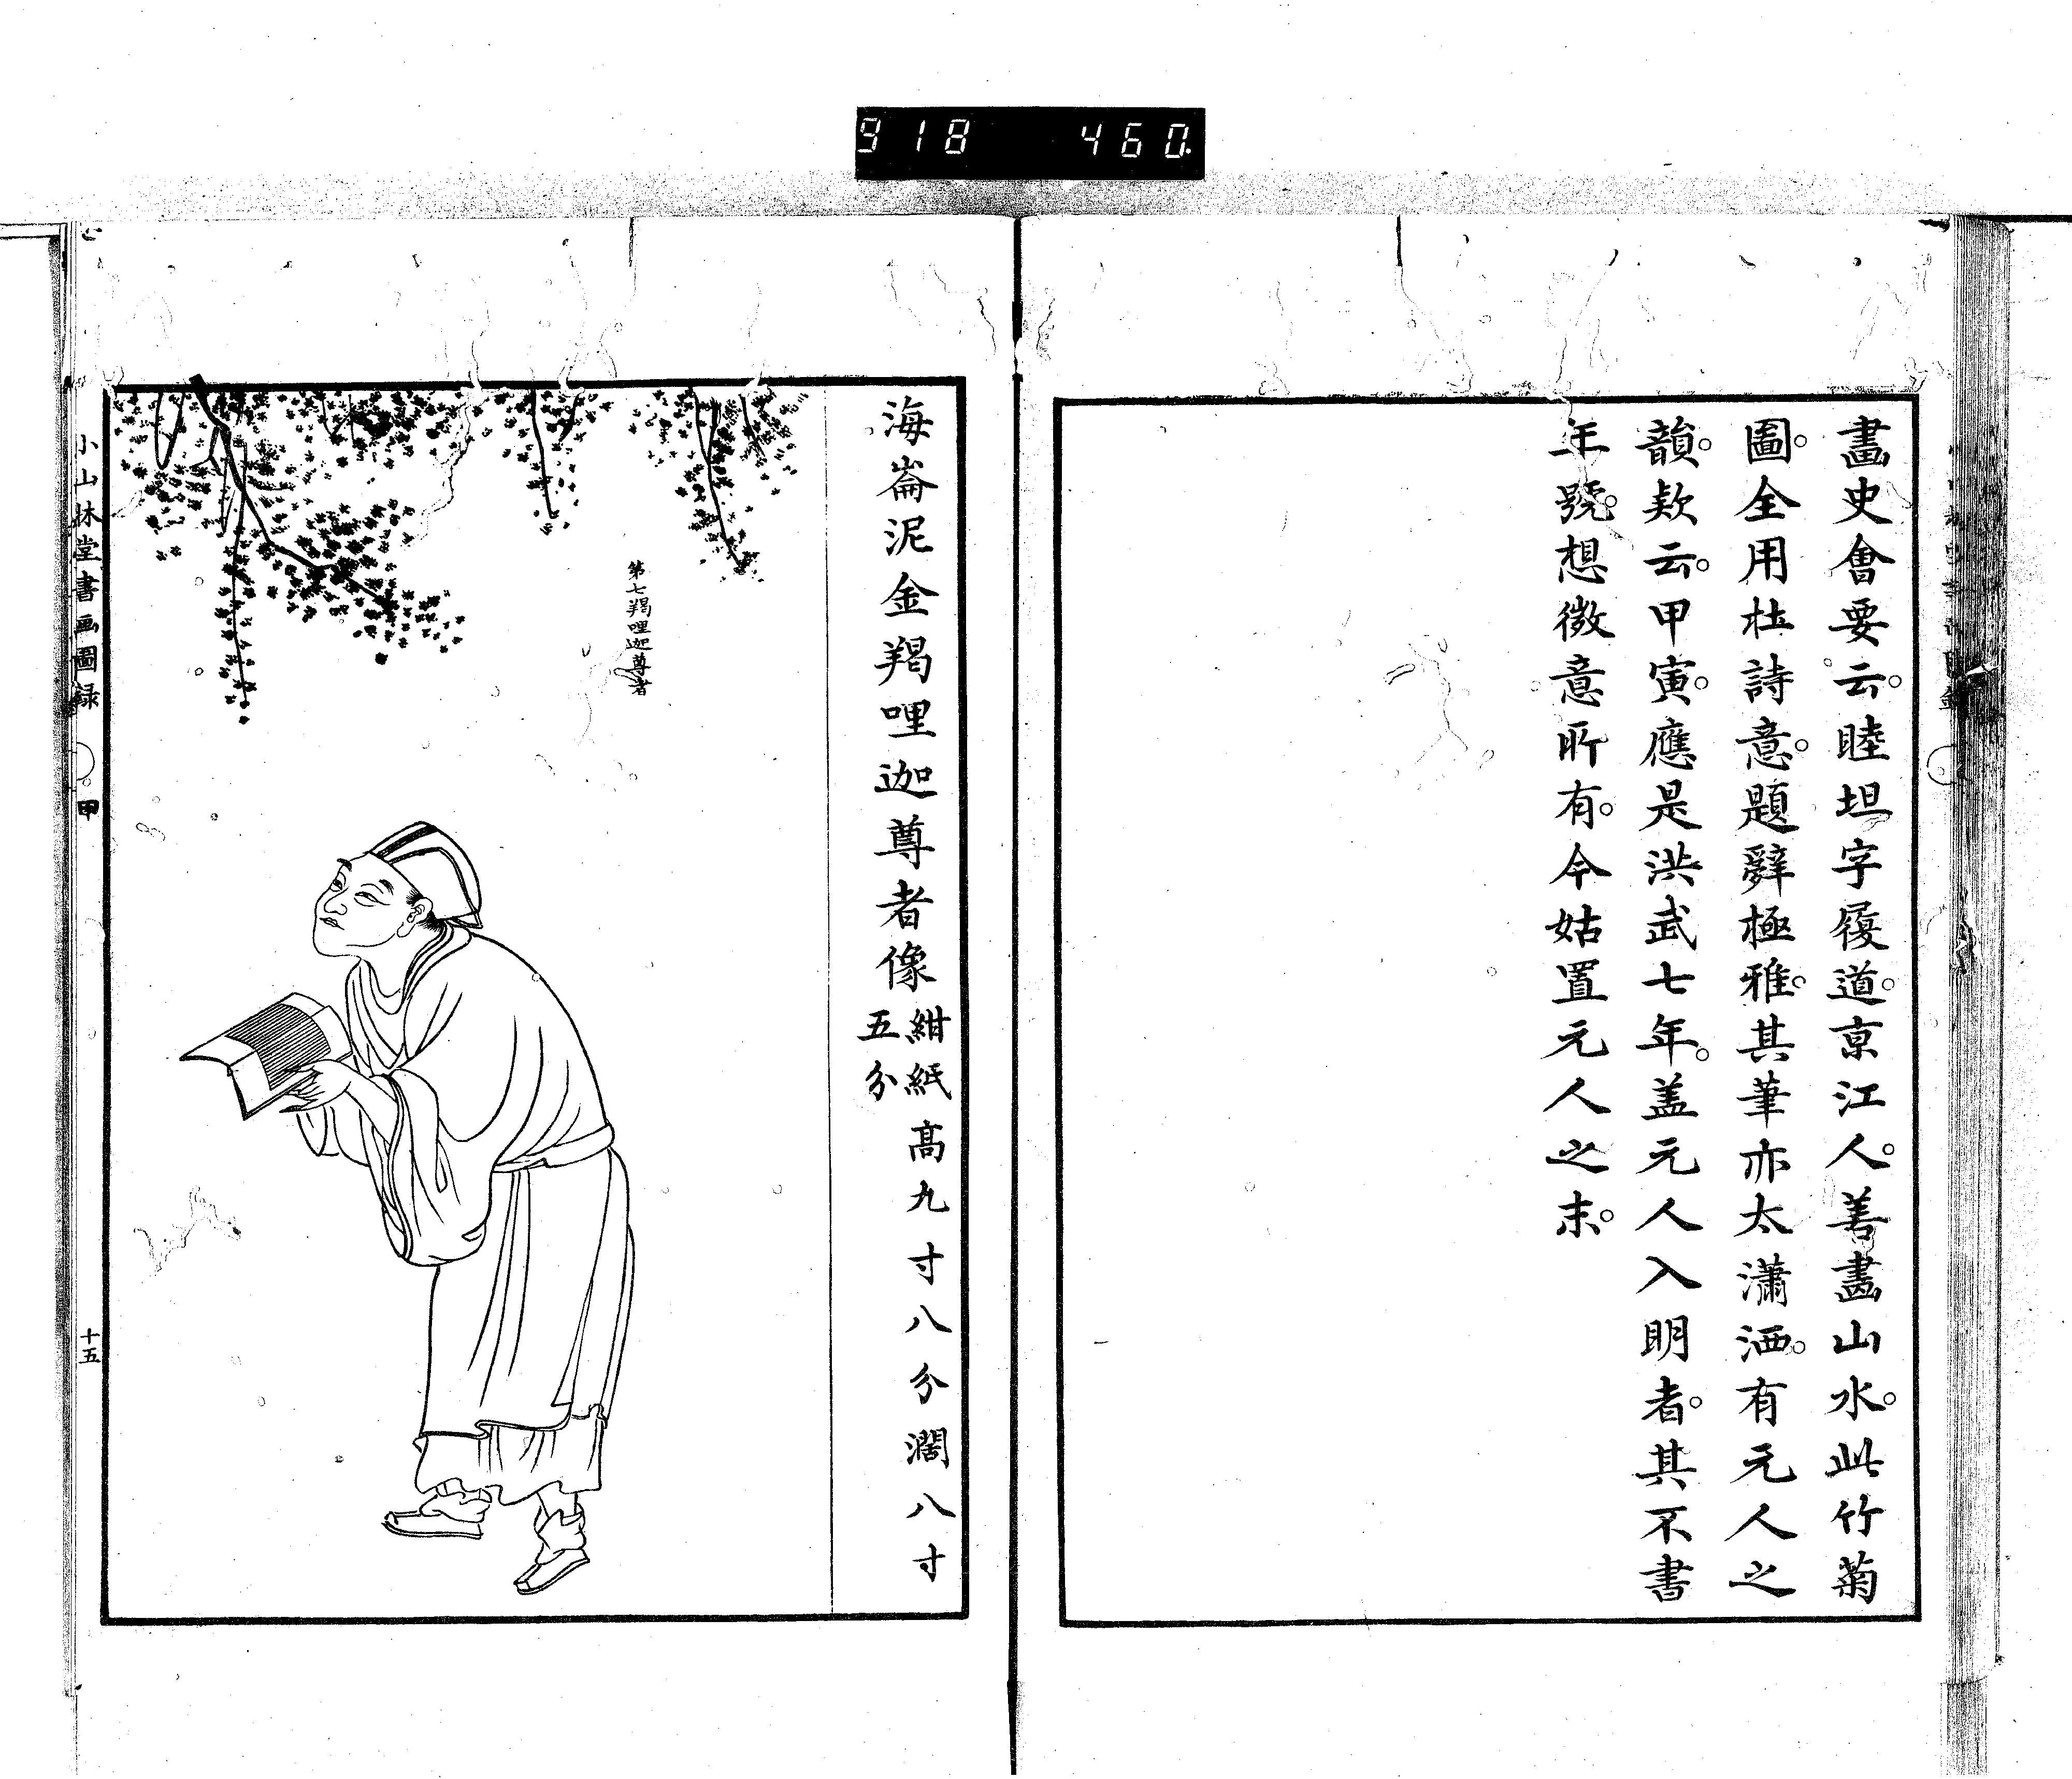 918 460
畫史會要云。睦坦字履道。京江人。善畵山水。此竹菊
圖。全用杜詩意。題辭極雅。其筆亦太瀟洒。有元人之
韻。欵云。甲寅。應是洪武七年。盖元人入明者。其不書
年號。想微意所有。今姑置元人之末。
海崙泥金羯哩迦尊者像 紺紙高九寸八分濶八寸
五分
第七羯哩迦尊者
小山林堂書画圖録 甲 十五